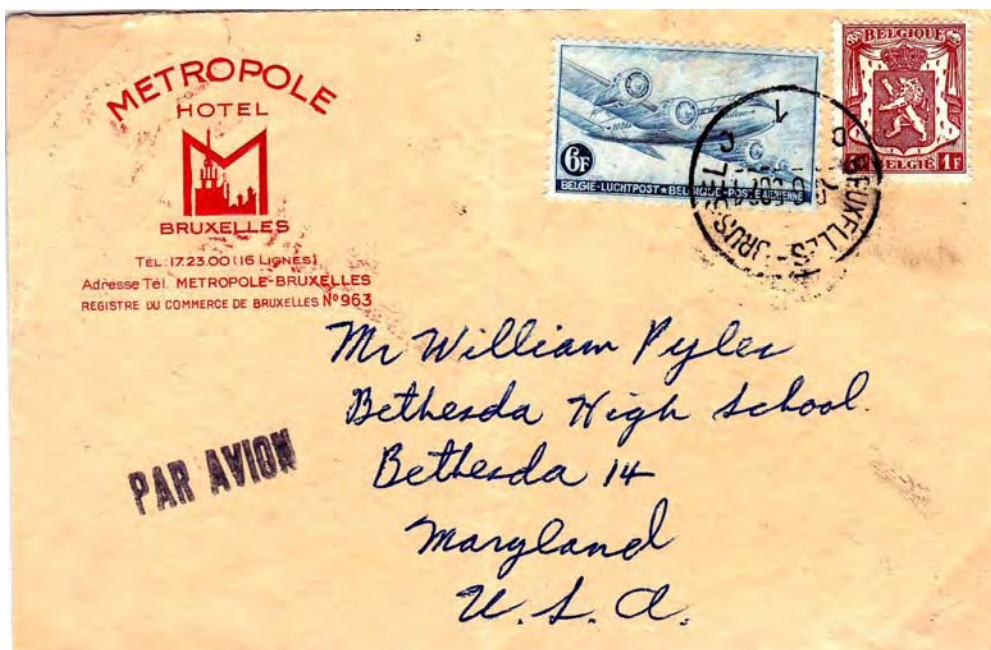 METROPOLE
HOTEL
BRUXELLES
TÉL: 17.23.00 (16 LIGNES)
Adresse Tél. METROPOLE-BRUXELLES
REGISTRE DU COMMERCE DE BRUXELLES Nº 963
6F
BELGIE-LUCHTPOST★BELGIQUE-POSTE AERIENNE
BELGIQUE
BELGIË 1F
BRUXELLES - BRUSSEL
PAR AVION
Mr William Pyles
Bethesda High School
Bethesda 14
Maryland
U.S.A.